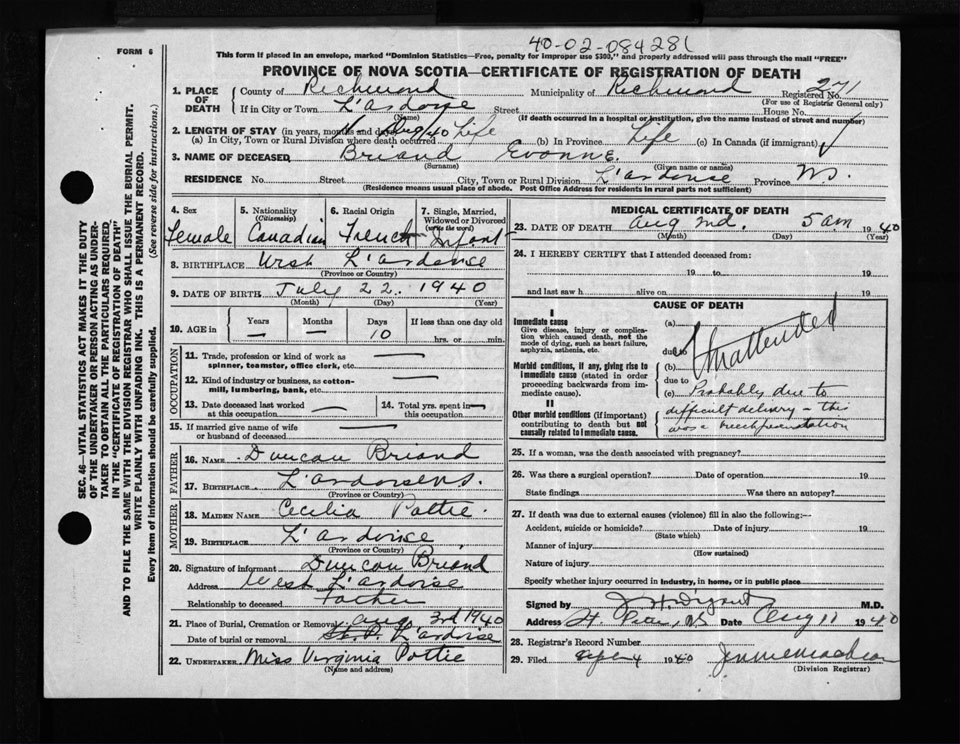 FORM 6
40-02-084281
This form if placed in an envelope, marked "Dominion Statistics—Free, penalty for improper use $300," and properly addressed will pass through the mail "FREE"
PROVINCE OF NOVA SCOTIA—CERTIFICATE OF REGISTRATION OF DEATH
1. PLACE OF DEATH { County of Richmond Municipality of Richmond Registered No. 271
(For use of Registrar General only)
If in City or Town L'ardoise Street House No.
(Name) (If death occurred in a hospital or institution, give the name instead of street and number)
2. LENGTH OF STAY (in years, months and days)
(a) In City, Town or Rural Division where death occurred Life (b) In Province Life (c) In Canada (if immigrant)
3. NAME OF DECEASED Briand Evonne
(Surname) (Given name or names)
RESIDENCE No. Street City, Town or Rural Division L'ardoise Province N.S.
(Residence means usual place of abode. Post Office Address for residents in rural parts not sufficient)
4. Sex 5. Nationality (Citizenship) 6. Racial Origin 7. Single, Married, Widowed or Divorced (write the word)
Female Canadian French Infant
8. BIRTHPLACE West L'ardoise
(Province or Country)
9. DATE OF BIRTH July 22. 1940
(Month) (Day) (Year)
10. AGE in { Years Months Days If less than one day old
— — 10 hrs. or min.
OCCUPATION
11. Trade, profession or kind of work as spinner, teamster, office clerk, etc. —
12. Kind of industry or business, as cotton-mill, lumbering, bank, etc. —
13. Date deceased last worked at this occupation — 14. Total yrs. spent in this occupation —
15. If married give name of wife or husband of deceased —
FATHER
16. NAME Duncan Briand
17. BIRTHPLACE L'ardoise N.S.
(Province or Country)
MOTHER
18. MAIDEN NAME Cecilia Pottie
19. BIRTHPLACE L'ardoise
(Province or Country)
20. Signature of informant Duncan Briand
Address West L'ardoise
Relationship to deceased Father
21. Place of Burial, Cremation or Removal Aug 3rd 1940
Date of burial or removal L'ardoise
22. UNDERTAKER Miss Virginia Pottie
(Name and address)
MEDICAL CERTIFICATE OF DEATH
23. DATE OF DEATH Aug 2nd. 5 am 1940
(Month) (Day) (Year)
24. I HEREBY CERTIFY that I attended deceased from:
19 to 19
and last saw h alive on 19
CAUSE OF DEATH
I
Immediate cause
Give disease, injury or complication which caused death, not the mode of dying, such as heart failure, asphyxia, asthenia, etc.
Morbid conditions, if any, giving rise to immediate cause (stated in order proceeding backwards from immediate cause).
II
Other morbid conditions (if important) contributing to death but not causally related to immediate cause.
(a)
due to
(b) Unattended
due to
(c) Probably due to
difficult delivery - this
was a breech presentation
25. If a woman, was the death associated with pregnancy?
26. Was there a surgical operation? Date of operation 19
State findings Was there an autopsy?
27. If death was due to external causes (violence) fill in also the following:—
Accident, suicide or homicide? Date of injury 19
(State which)
Manner of injury
(How sustained)
Nature of injury
Specify whether injury occurred in industry, in home, or in public place
Signed by M.D.
Address St. Peters, NS Date Aug 11 1940
28. Registrar's Record Number
29. Filed Sept 4 1940
(Division Registrar)
SEC. 46—VITAL STATISTICS ACT MAKES IT THE DUTY
OF THE UNDERTAKER OR PERSON ACTING AS UNDER-
TAKER TO OBTAIN ALL THE PARTICULARS REQUIRED
IN THE "CERTIFICATE OF REGISTRATION OF DEATH"
AND TO FILE THE SAME WITH THE DIVISION REGISTRAR WHO SHALL ISSUE THE BURIAL PERMIT.
WRITE PLAINLY WITH UNFADING INK. THIS IS A PERMANENT RECORD.
Every item of information should be carefully supplied. (See reverse side for instructions.)